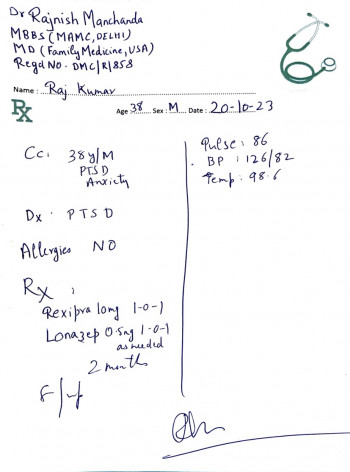 Dr Rajnish Manchanda
MBBS (MAMC, DELHI)
MD (Family Medicine, USA)
Regd No. DMC/R/858
Name: Raj Kumar
Rx
Age 38 Sex: M Date: 20-10-23
Cc: 38y/M
PTSD
Anxiety
Dx: PTSD
Allergies NO
Rx:
Rexipra long 1-0-1
Lonazep 0.5mg 1-0-1
as needed
2 months
F/up
Pulse: 86
BP: 126/82
Temp: 98.6